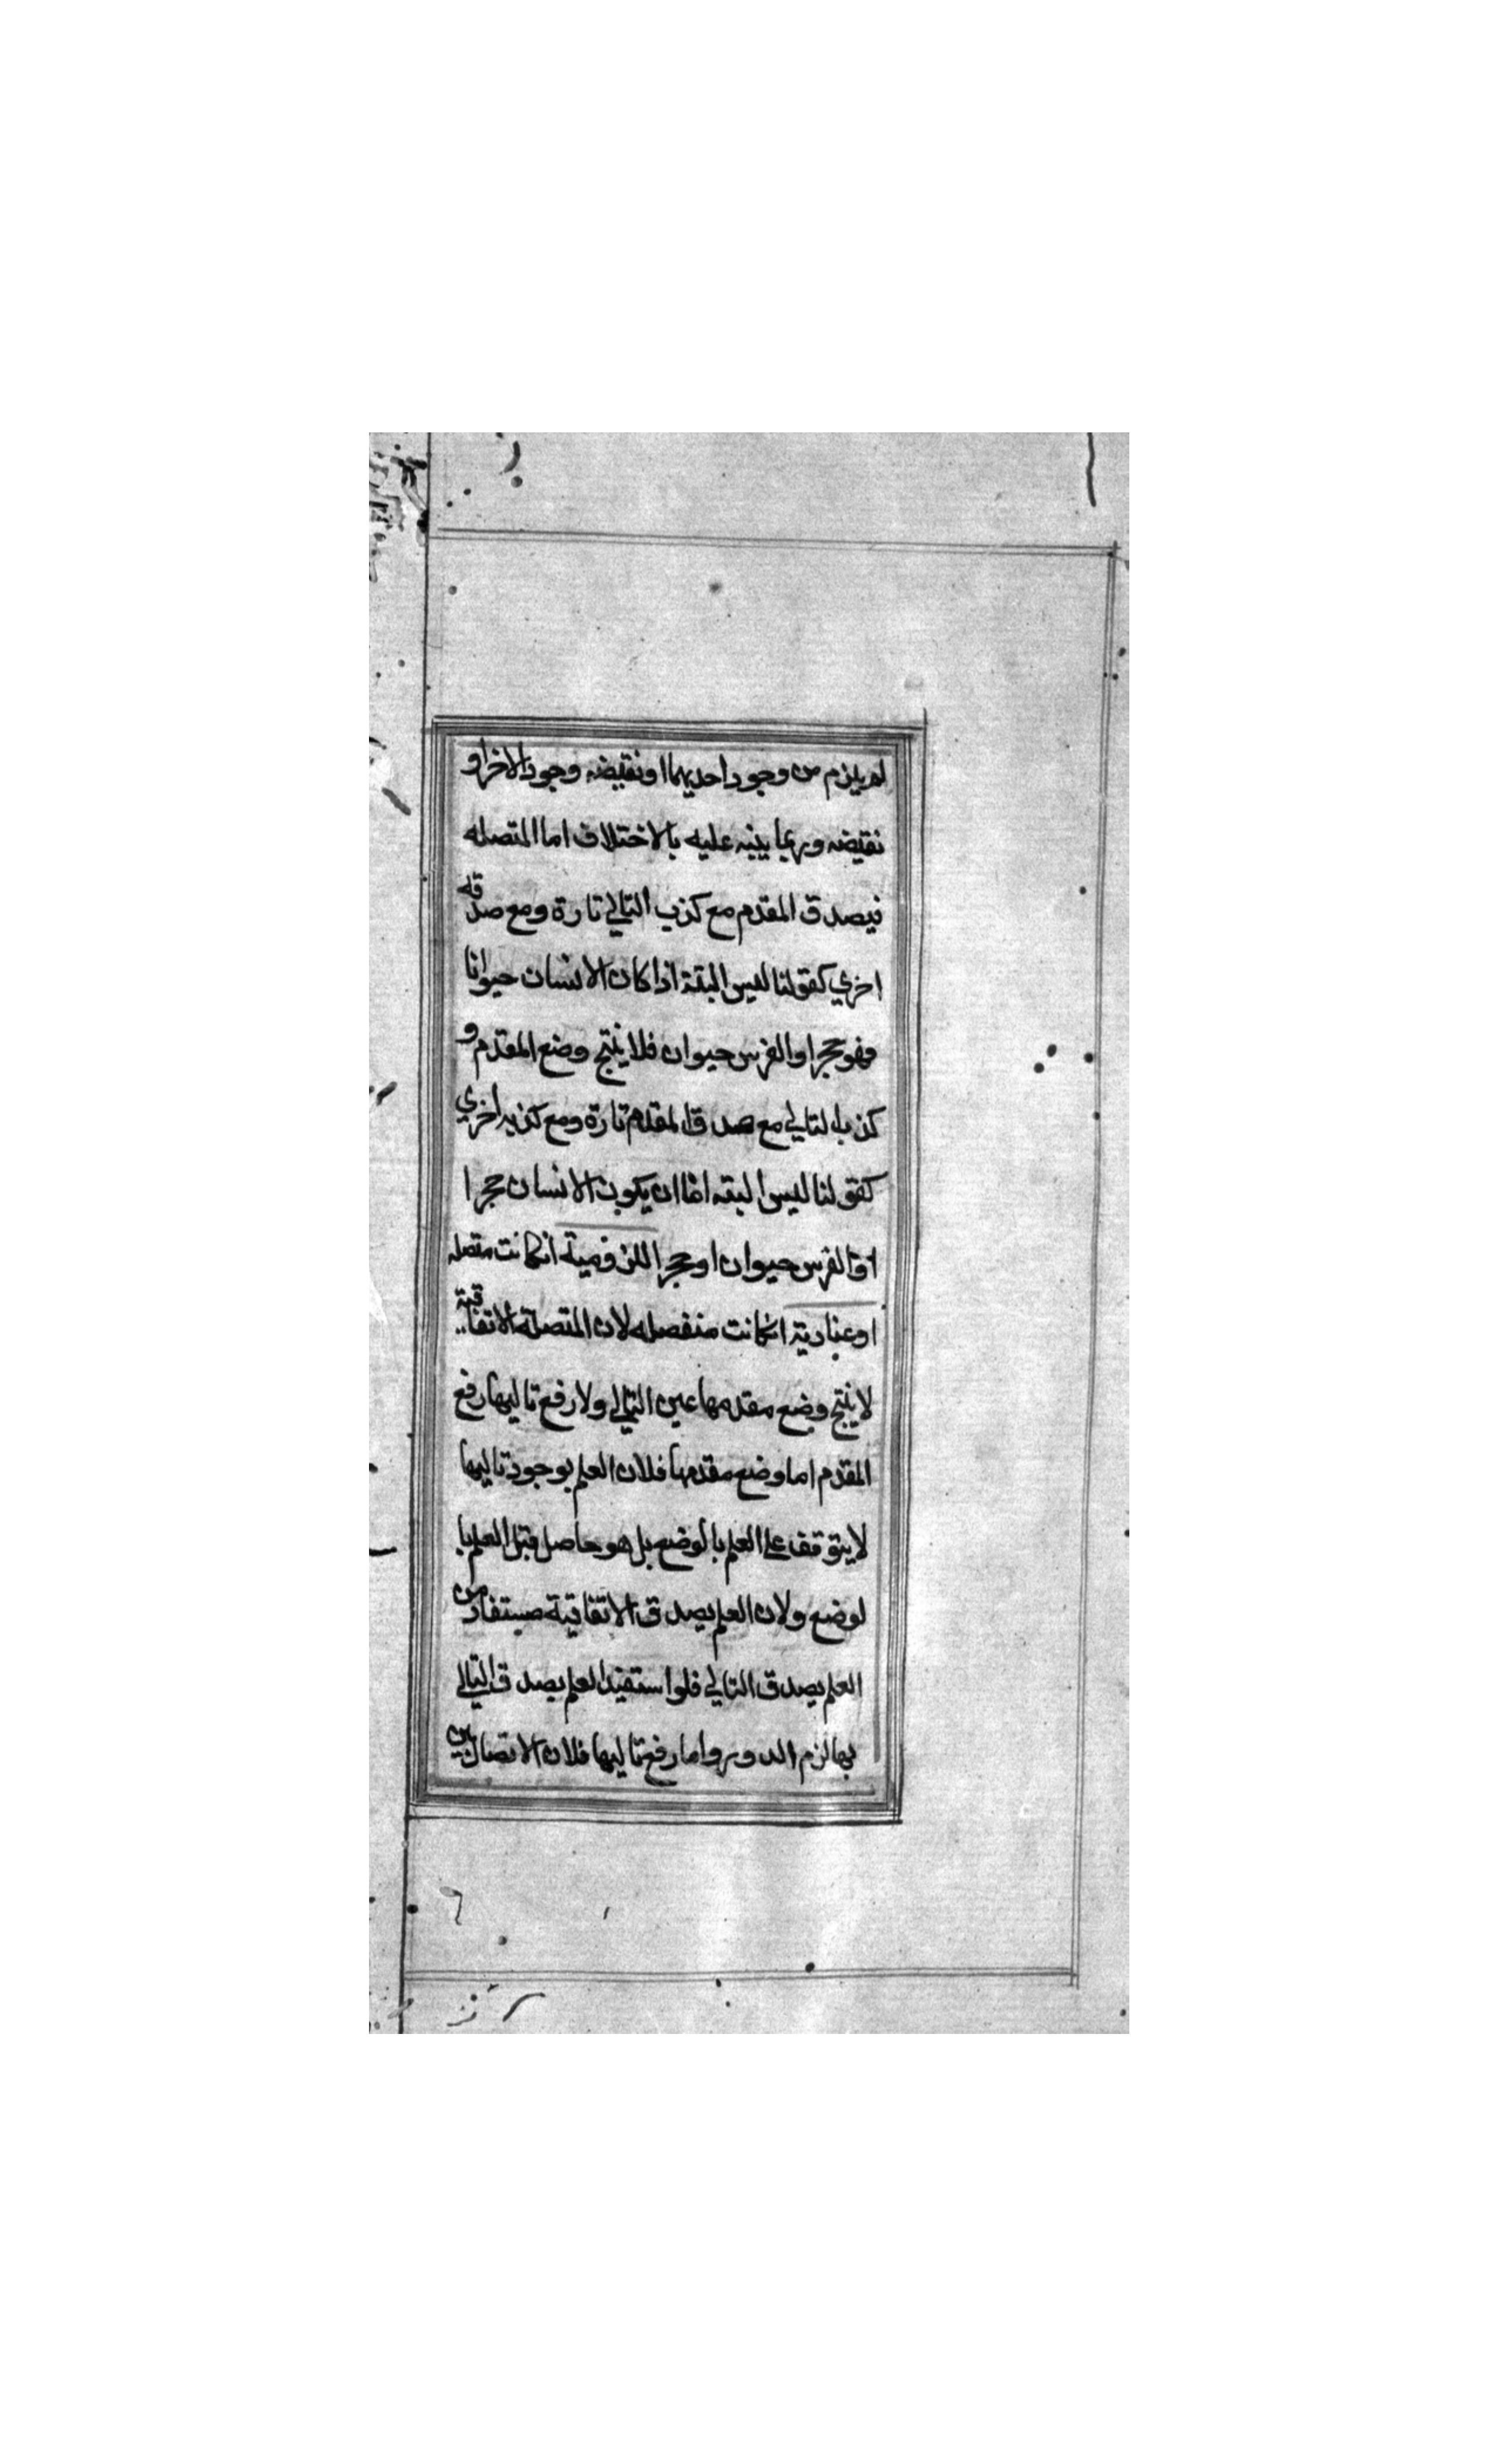 لم يلزم من وجود احديهما او نقيضه وجود الاخر او
نقيضه وربما ينبه عليه بالاختلاف اما المتصله
فيصدق المقدم مع كذب التالي تارة ومع صدقه
اخري كقولنا ليس البتة اذا كان الانسان حيوانا
فهو حجر او الفرس حيوان فلا ينتج وضع المقدم و
كذب التالي مع صدق المقدم تارة ومع كذبه اخري
كقولنا ليس البته اما ان يكون الانسان حجرا
او الفرس حيوان او حجر اللزومية انكانت متصله
او عنادية انكانت منفصله لان المتصلة الاتفاقية
لا ينتج وضع مقدمها عين التالي ولا رفع تاليها رفع
المقدم اما وضع مقدمها فلان العلم بوجود تاليها
لا يتوقف على العلم بالوضع بل هو حاصل قبل العلم با
لوضع ولان العلم بصدق الاتفاقية مستفاد من
العلم بصدق التالي فلو استفيد العلم بصدق التالي
بها لزم الدور واما رفع تاليها فلان الاتصال بين